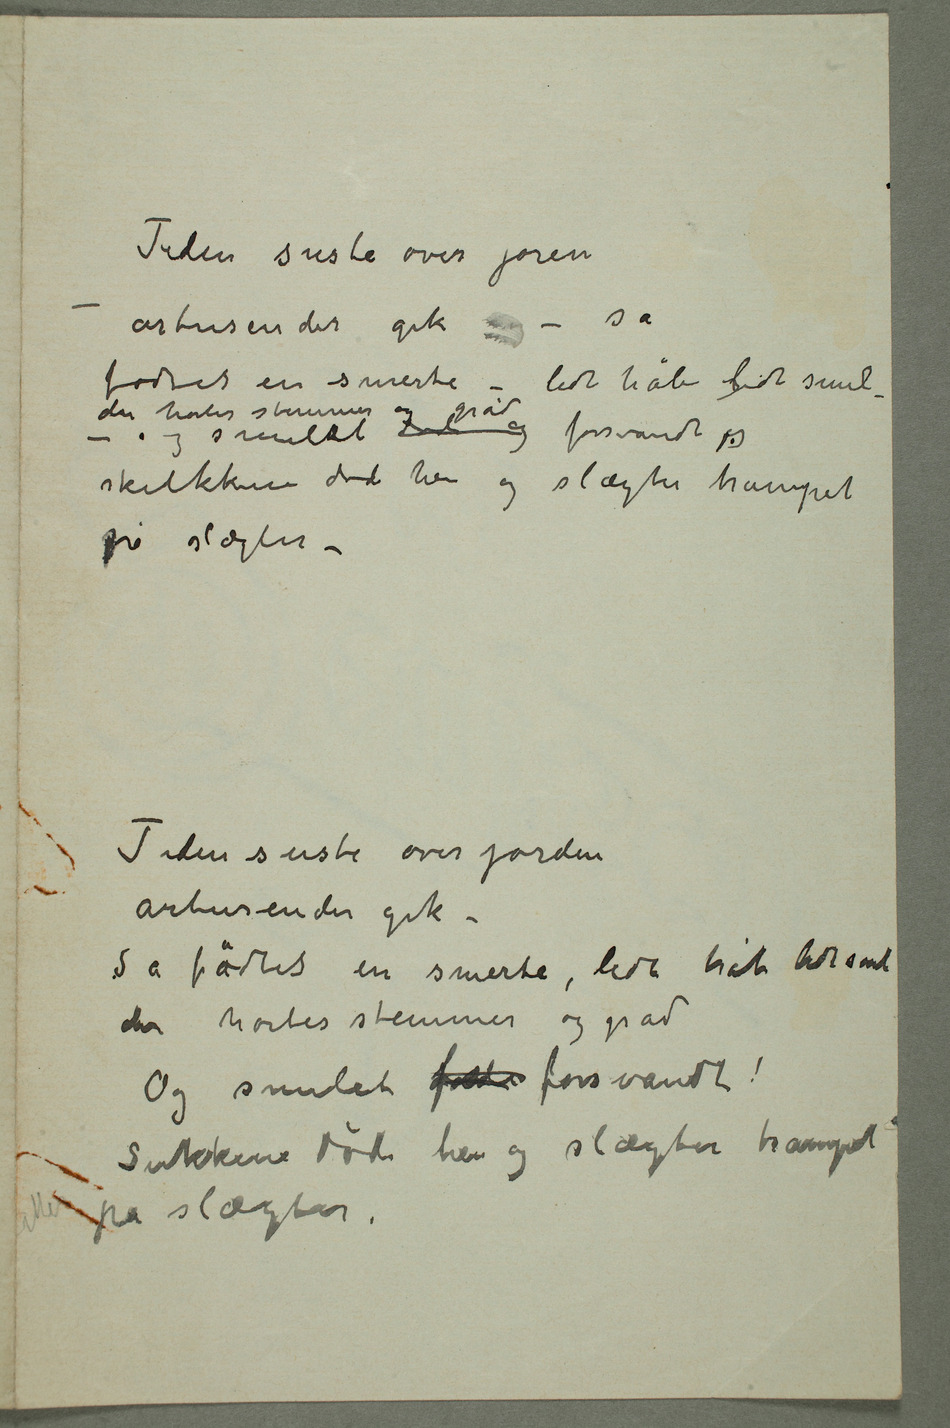 Tiden suste over joren
– artusender gik – så
fødtes en smerte – lidt håb lidt smil –
der hørtes stemmer og gråd
– og smilet og forsvandt og
skikkene død hen og slægter trampet
på slægter –
Tiden suste over jorden
artusender gik –
Så fødtes en smerte, lidt håb lidt smil
der hørtes stemmer og gråd
Og smilet fødtes forsvandt!
Sukkene døde hen og slægter trampet
på slægter.